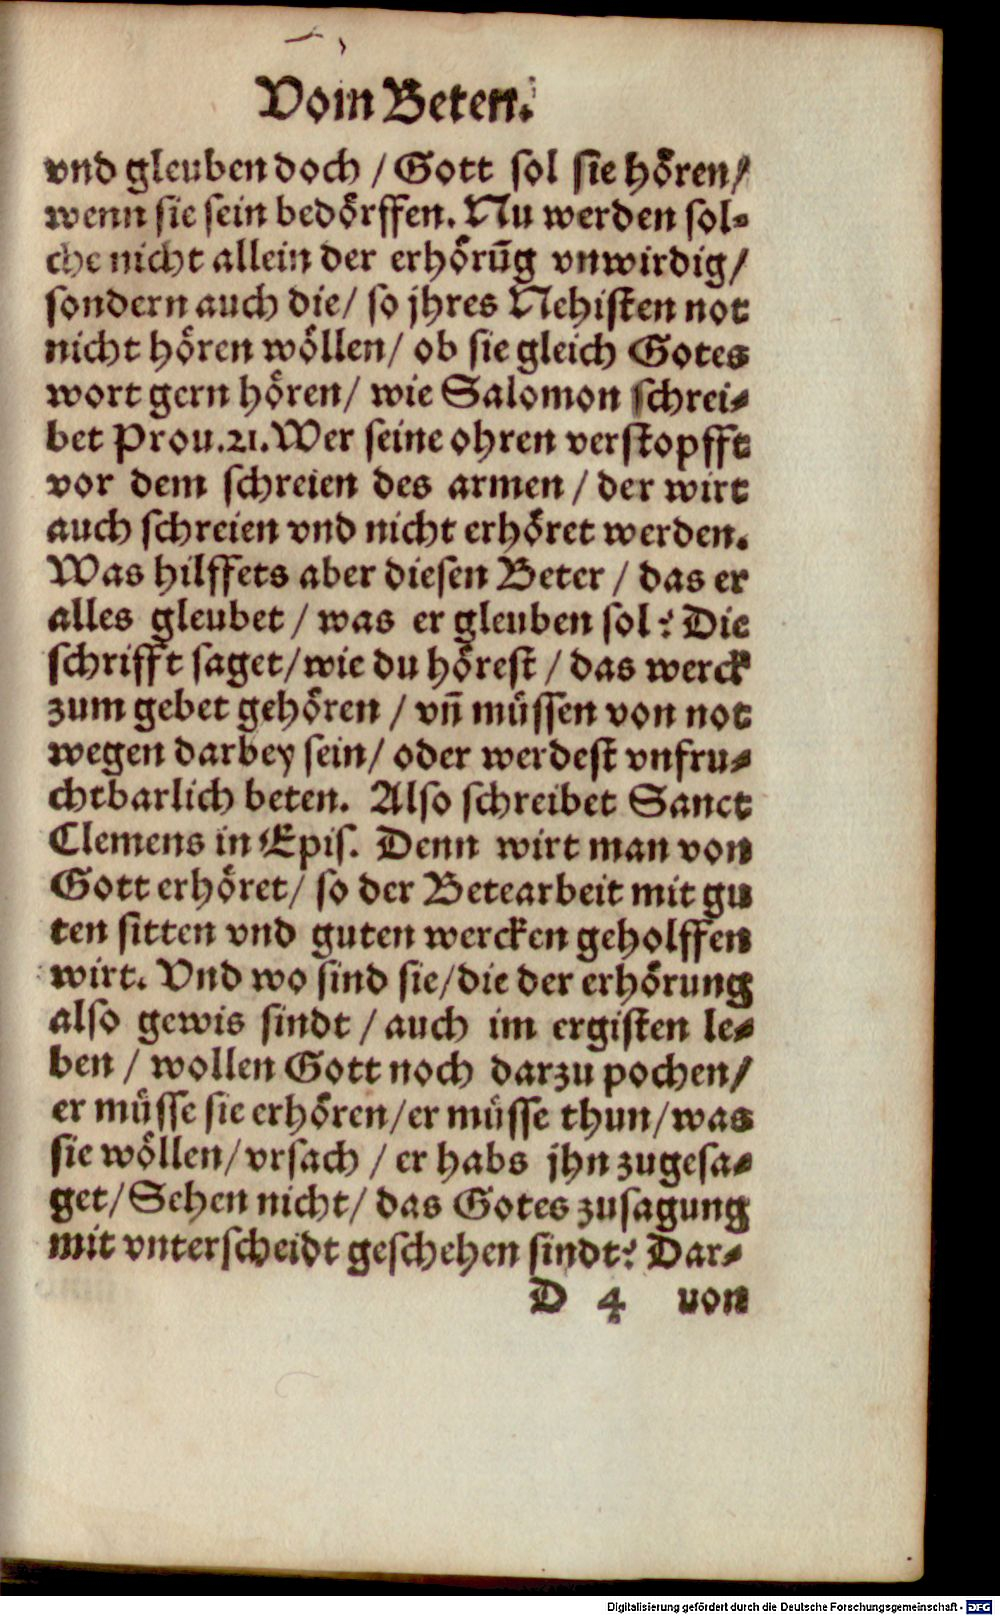 Vom Beten.
vnd gleuben doch / Gott sol sie hören/
wenn sie sein bedörffen. Nu werden sol-
che nicht allein der erhörūg vnwirdig/
sondern auch die/ so jhres Nehisten not
nicht hören wöllen/ ob sie gleich Gotes
wort gern hören/ wie Salomon schrei-
bet Prou.21. Wer seine ohren verstopfft
vor dem schreien des armen / der wirt
auch schreien vnd nicht erhöret werden.
Was hilffets aber diesen Beter / das er
alles gleubet / was er gleuben sol? Die
schrifft saget/wie du hörest / das werck
zum gebet gehören / vn̄ müssen von not
wegen darbey sein/ oder werdest vnfru-
chtbarlich beten. Also schreibet Sanct
Clemens in Epis. Denn wirt man von
Gott erhöret/ so der Betearbeit mit gu
ten sitten vnd guten wercken geholffen
wirt. Vnd wo sind sie/die der erhörung
also gewis sindt / auch im ergisten le-
ben / wollen Gott noch darzu pochen/
er müsse sie erhören/er müsse thun/was
sie wöllen/vrsach / er habs jhn zugesa-
get/Sehen nicht/ das Gotes zusagung
mit vnterscheidt geschehen sindt? Dar-
D 4 von
Digitalisierung gefördert durch die Deutsche Forschungsgemeinschaft - DFG